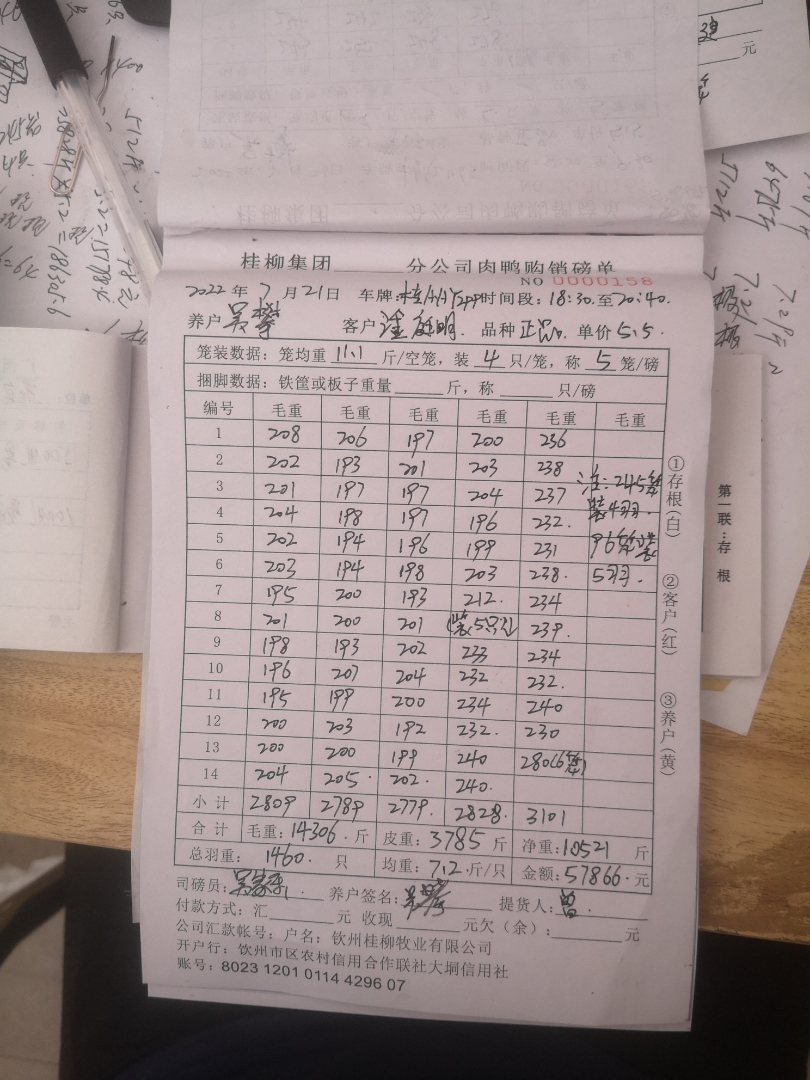 桂柳集团 分公司肉鸭购销磅单
NO 0000158
2022年7月21日 车牌: 时间段:18:30.至20:40.
养户 客户 品种 正品. 单价 5.5.
笼装数据:笼均重 11.1 斤/空笼,装 4 只/笼,称 5 笼/磅
捆脚数据:铁筐或板子重量 斤,称 只/磅
编号 毛重 毛重 毛重 毛重 毛重 毛重
1 208 206 197 200 236
2 202 193 201 203 238
3 201 197 197 204 237 注:245笼
4 204 198 197 196 232. 装4羽.
5 202 194 196 199 231 96笼装
6 203 194 198 203 238. 5羽.
7 195 200 193 212. 234
8 201 200 201 (装5只) 239.
9 198 193 202 233 234
10 196 207 204 232 232.
11 195 199 200 234 240
12 200 203 192 232. 230
13 200 200 199 240 280(6笼)
14 204 205. 202. 240.
小计 2809 2789 2779. 2828. 3101
合计 毛重:14306.斤 皮重:3785斤 净重:10521 斤
总羽重: 1460. 只 均重:7.2.斤/只 金额:57866.元
司磅员: 养户签名: 提货人:曾.
付款方式:汇 元 收现 元欠(余): 元
公司汇款帐号:户名:钦州桂柳牧业有限公司
开户行:钦州市区农村信用合作联社大垌信用社
账号:8023 1201 0114 4296 07
①存根(白) ②客户(红) ③养户(黄)
第一联:存根